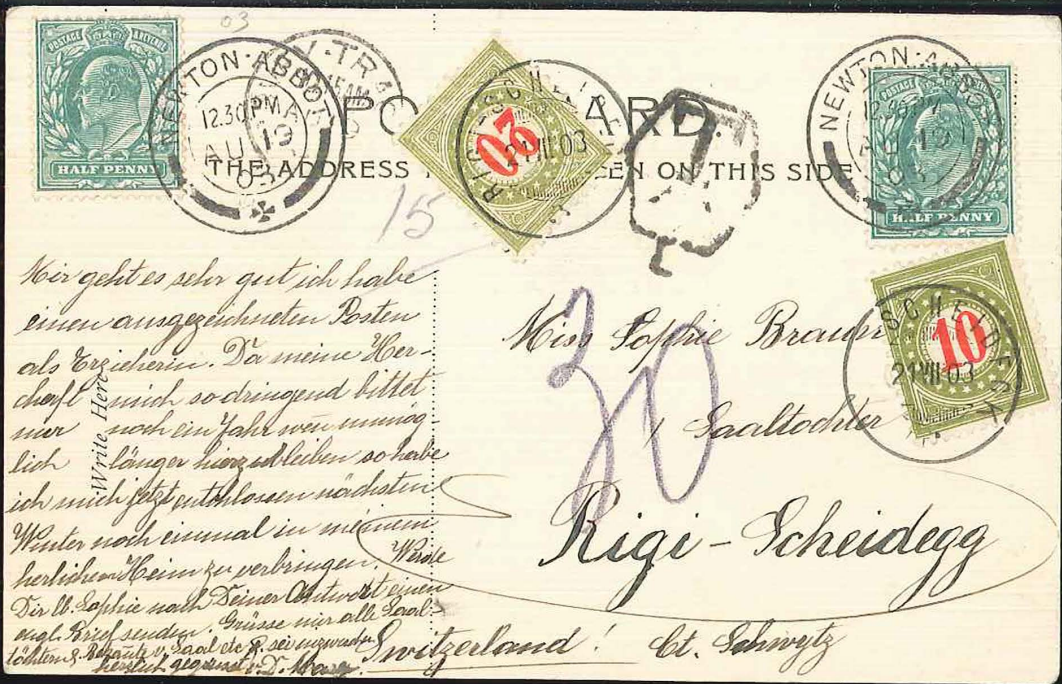 03
POSTAGE REVENUE
HALF PENNY
NEWTON-ABBOT
12.30PM
AU 19
03
POST CARD.
THE ADDRESS TO BE WRITTEN ON THIS SIDE
20
RIGI-SCHEIDEGG
21 VII 03
T
NEWTON-ABBOT
12.30PM
AU 19
03
POSTAGE REVENUE
HALF PENNY
15
10
SCHEIDEGG
21 VII 03
30
Write Here
Mir geht es sehr gut ich habe
einen ausgezeichneten Posten
als Erzieherin. Da meine Her-
chaft mich so dringend bittet
nur noch ein Jahr wenn unmög
lich länger hierzubleiben so habe
ich mich jetzt entschlossen nächsten
Winter noch einmal in meinem
herlichen Heim zu verbringen. Werde
Dir lb. Sophie nach Deiner Antwort einen
engl. Brief senden. Grüsse mir alle Saal-
töchtern & Bekante v. Saal etc
herzlich gegrüsst v. D. Mary.
Miss Sophie Brauer
Saaltochter
Rigi-Scheidegg
Switzerland! Ct. Schwytz